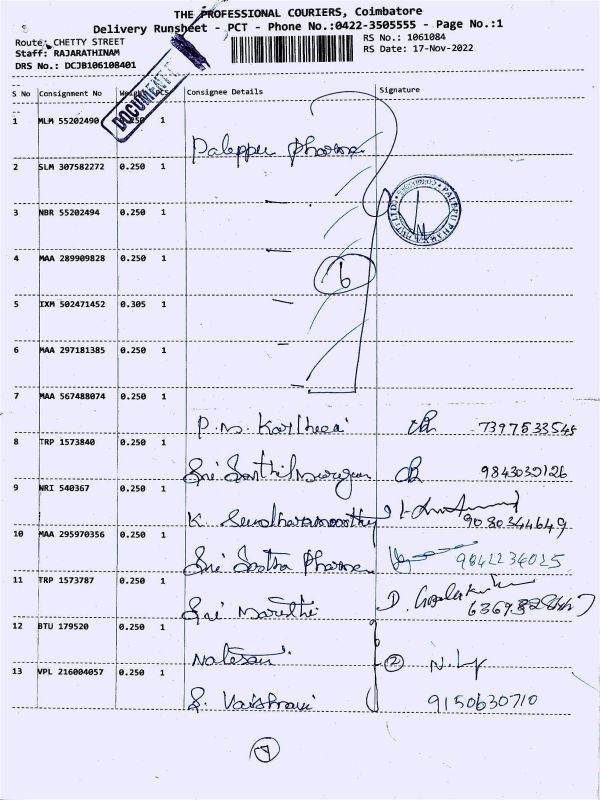 THE PROFESSIONAL COURIERS, Coimbatore
Delivery Runsheet - PCT - Phone No.:0422-3505555 - Page No.:1
Route: CHETTY STREET
RS No.: 1061084
Staff: RAJARATHINAM
RS Date: 17-Nov-2022
DRS No.: DCJB106108401
DOCUMENT
S No Consignment No Weight PCS Consignee Details Signature
1 MLM 55202490 1
Paleppu Pharma
2 SLM 307582272 0.250 1
3 NBR 55202494 0.250 1
4 MAA 289909828 0.250 1
6
5 IXM 502471452 0.305 1
6 MAA 297181385 0.250 1
7 MAA 567488074 0.250 1
P.N. 7397533545
8 TRP 1573840 0.250 1
Sri Senthil Murugan 9843030126
9 NRI 540367 0.250 1
K. 9080344649
10 MAA 295970356 0.250 1
Sri Sastha Pharma 9842234025
11 TRP 1573787 0.250 1
Sri Maruthi D.
12 BTU 179520 0.250 1
Natesan 2
13 VPL 216004057 0.250 1
S. Vaishnavi 9150630710
7